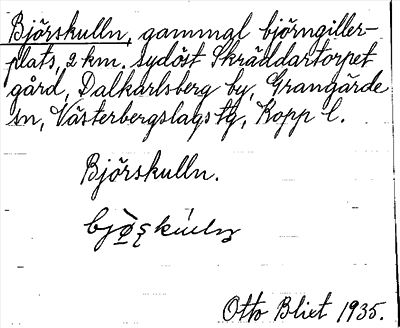 Björskulln, gammal björngiller-
plats, 2 km. sydöst Skräddartorpet
gård, Dalkarlsberg by, Grangärde
sn, Västerbergslags tg, Kopp l.
Björskulln.
Otto Blixt 1935.